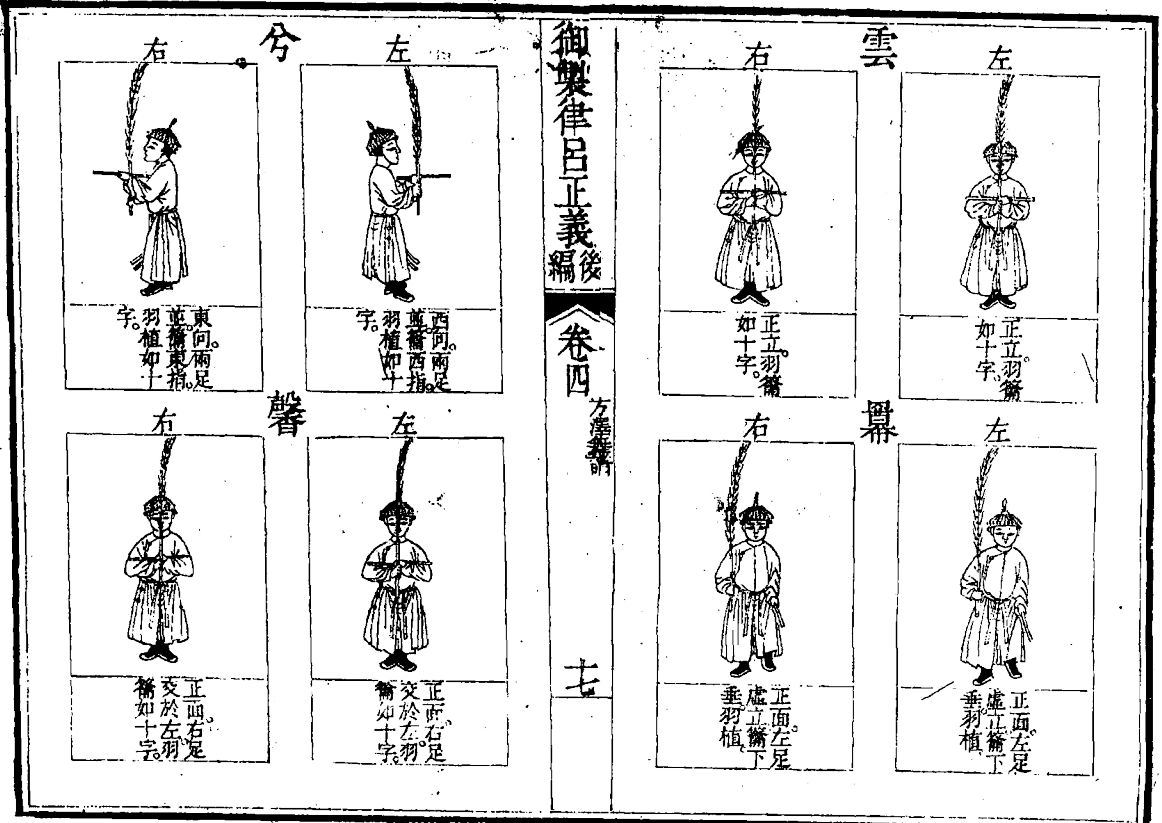 雲
左
正立。羽籥
如十字。
右
正立。羽籥
如十字。
羃
左
正面。左足
虛立。籥下
垂。羽植。
右
正面。左足
虛立。籥下
垂。羽植。
御製律呂正義後編
卷四
方澤
十七
兮
左
西向。兩足
並。籥西指。
羽植如十
字。
右
東向。兩足
並。籥東指。
羽植如十
字。
馨
左
正面。右足
交於左。羽
籥如十字。
右
正面。右足
交於左。羽
籥如十字。